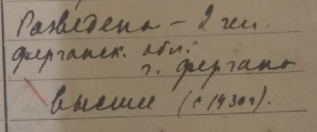 Разведена – 2 чел.
Ферганск. обл.
г. Фергана
высшее (с 1930г.)